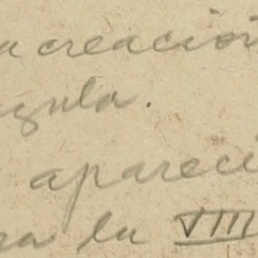 a creación
gula.
apareci
ra la VIII